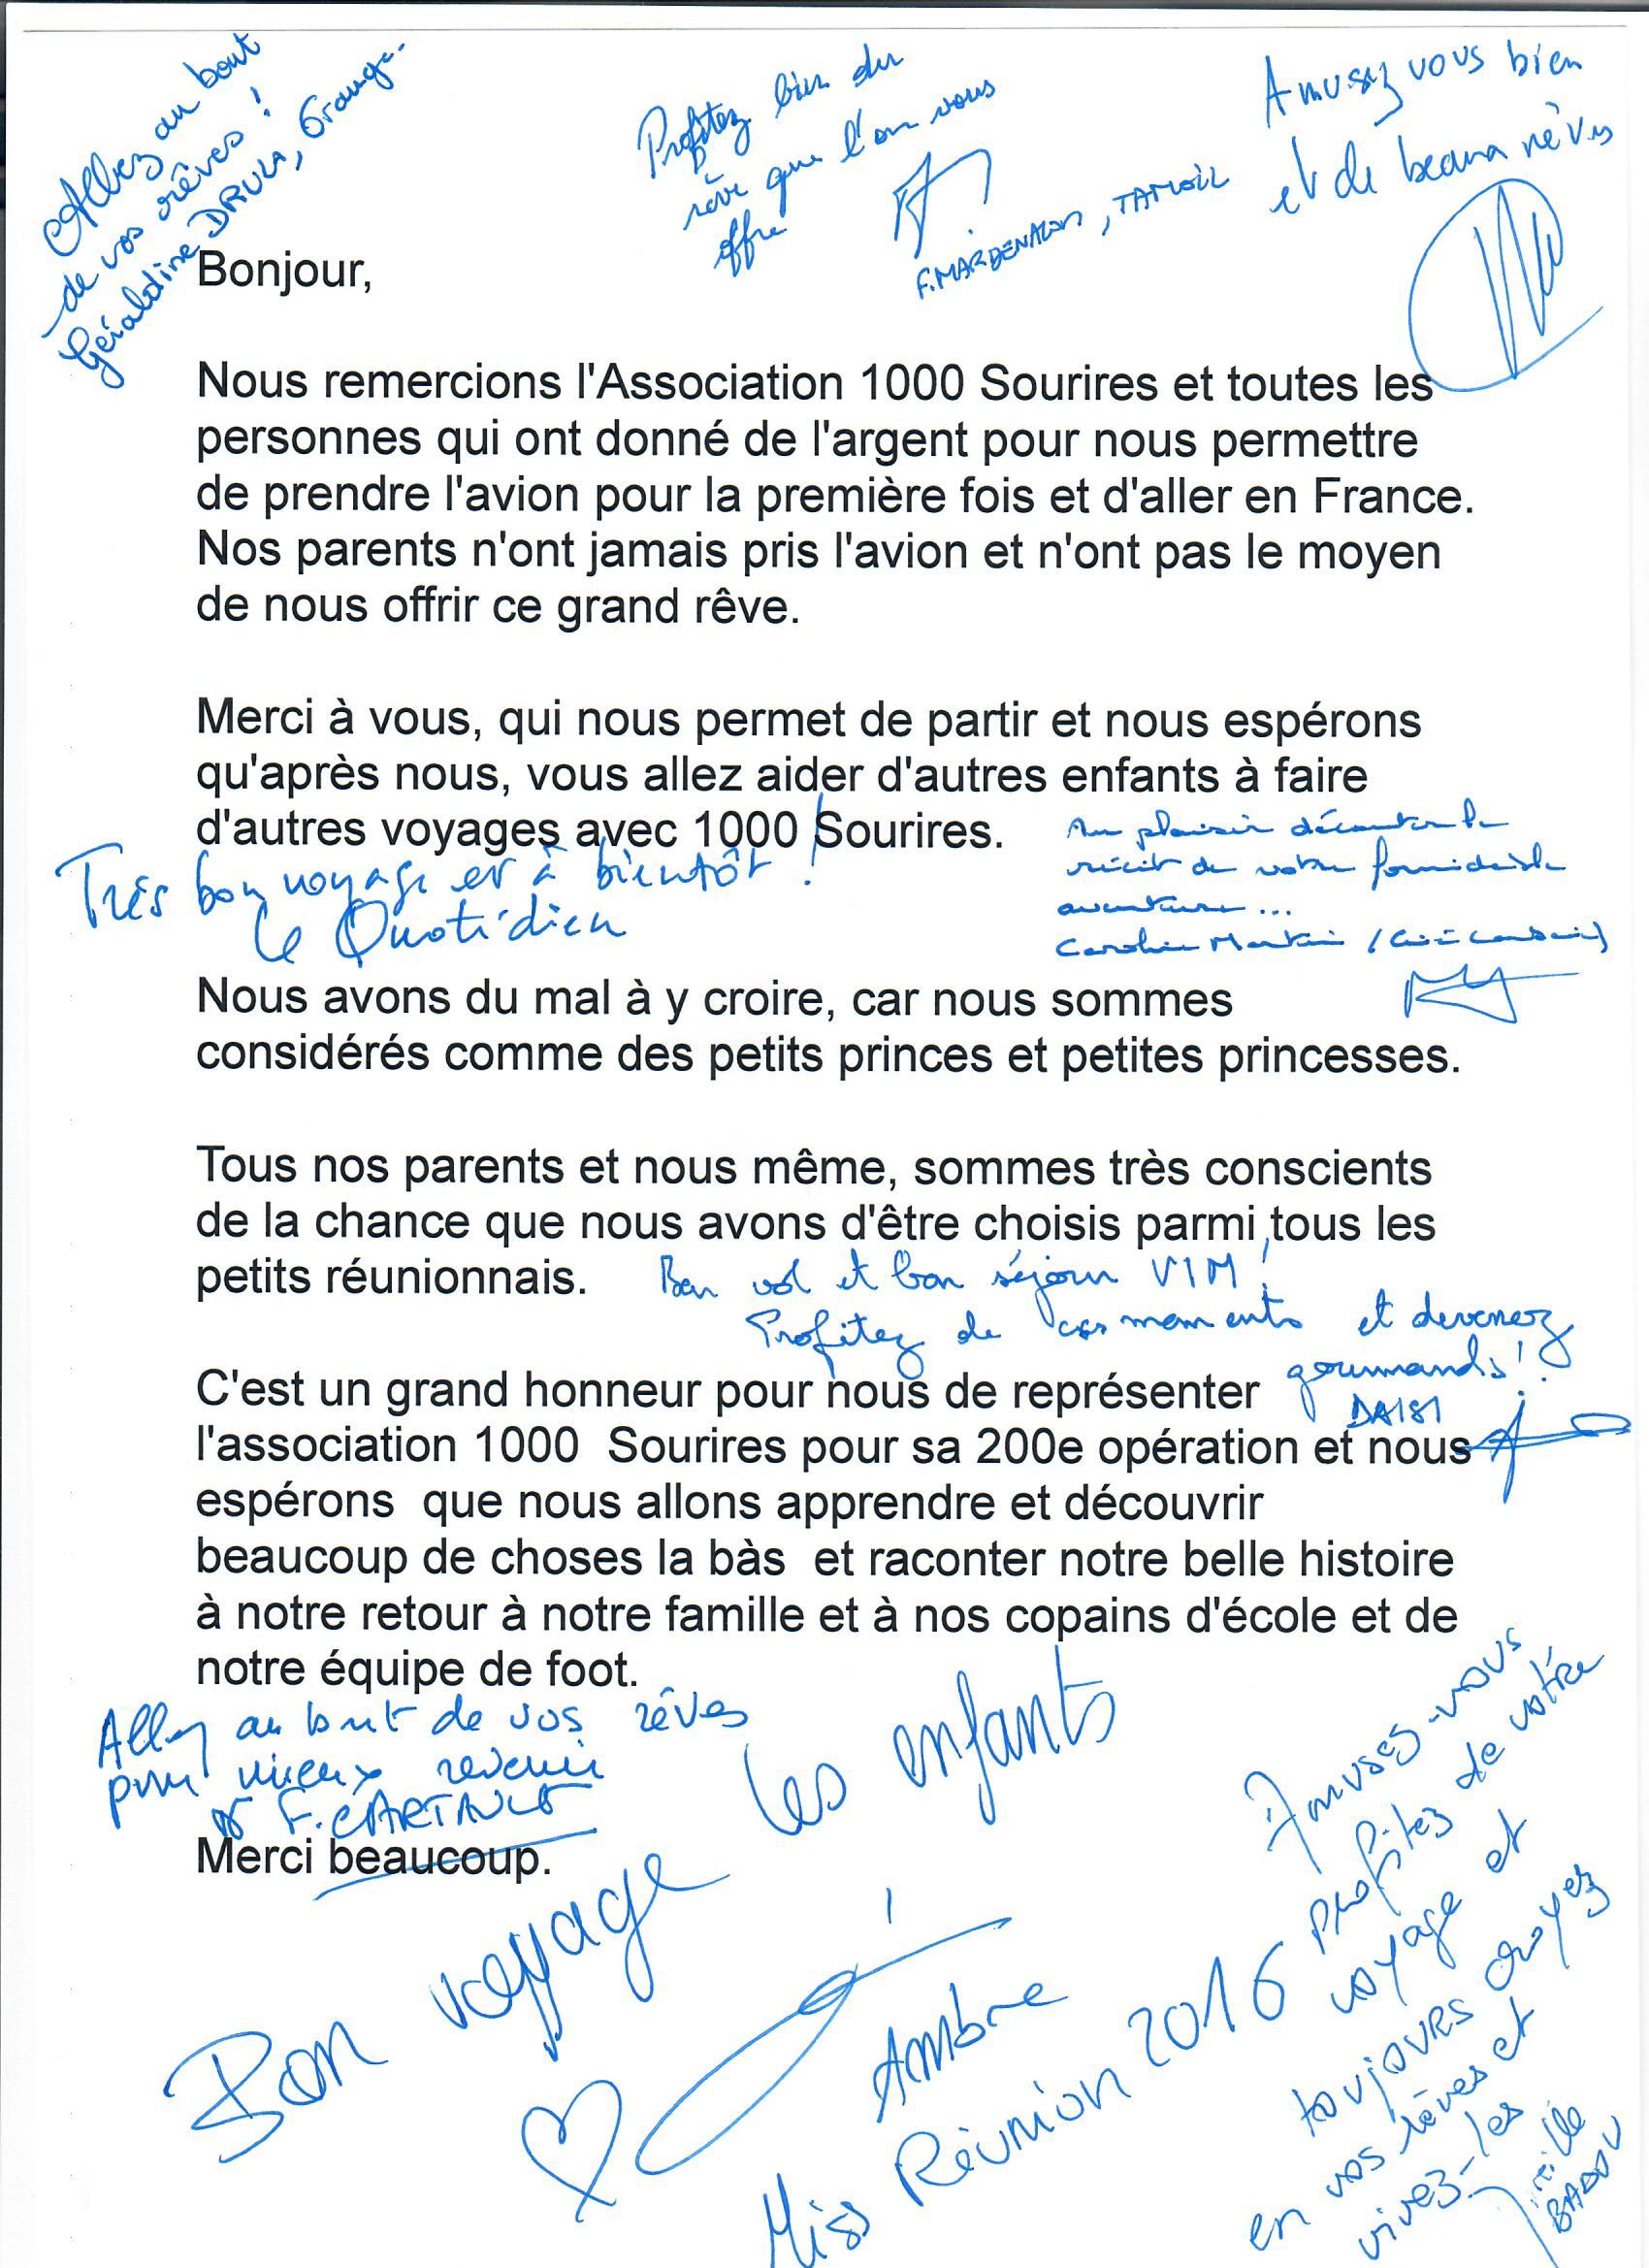 Allez au bout
de vos rêves !
Géraldine Orange
Profitez bien du
rêve que l'on vous
offre
F. TAMOIL
Amusez vous bien
et de beaux rêves
Bonjour,
Nous remercions l'Association 1000 Sourires et toutes les
personnes qui ont donné de l'argent pour nous permettre
de prendre l'avion pour la première fois et d'aller en France.
Nos parents n'ont jamais pris l'avion et n'ont pas le moyen
de nous offrir ce grand rêve.
Merci à vous, qui nous permet de partir et nous espérons
qu'après nous, vous allez aider d'autres enfants à faire
d'autres voyages avec 1000 Sourires.
Très bon voyage et à bientôt !
Le Quotidien
Au plaisir d'écouter le
récit de votre formidable
aventure...
Caroline Martin
Nous avons du mal à y croire, car nous sommes
considérés comme des petits princes et petites princesses.
Tous nos parents et nous même, sommes très conscients
de la chance que nous avons d'être choisis parmi tous les
petits réunionnais.
Bon vol et bon séjour VIM !
Profitez de ces moments et devenez
gourmands !
C'est un grand honneur pour nous de représenter
l'association 1000  Sourires pour sa 200e opération et nous
espérons  que nous allons apprendre et découvrir
beaucoup de choses la bàs  et raconter notre belle histoire
à notre retour à notre famille et à nos copains d'école et de
notre équipe de foot.
Allez au bout de vos rêves
pour mieux revenir
F. CARTAULT
Merci beaucoup.
Bon voyage les enfants
Ambre
Miss Réunion 2016
Amusez-vous
profitez de votre
voyage et
toujours croyez
en vos rêves et
vivez-les
BADOU